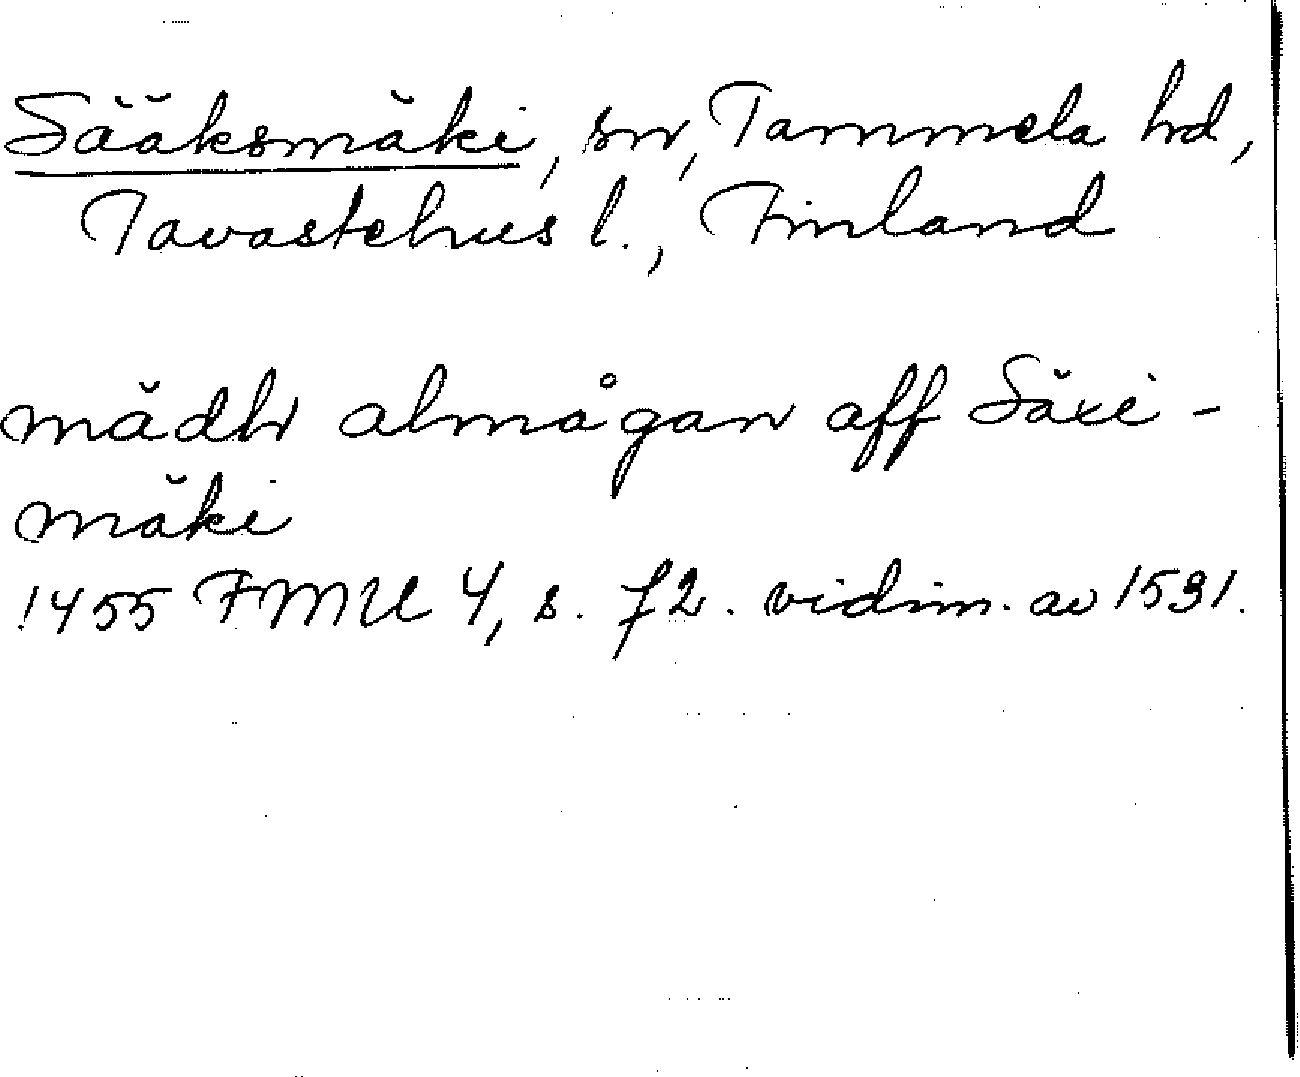 Sääksmäki, sn, Tammela hd,
Tavastehus l., Finland
mädh almågan aff Säxi-
mäki
1455 FMU 4, s. 72. vidim. av 1531.